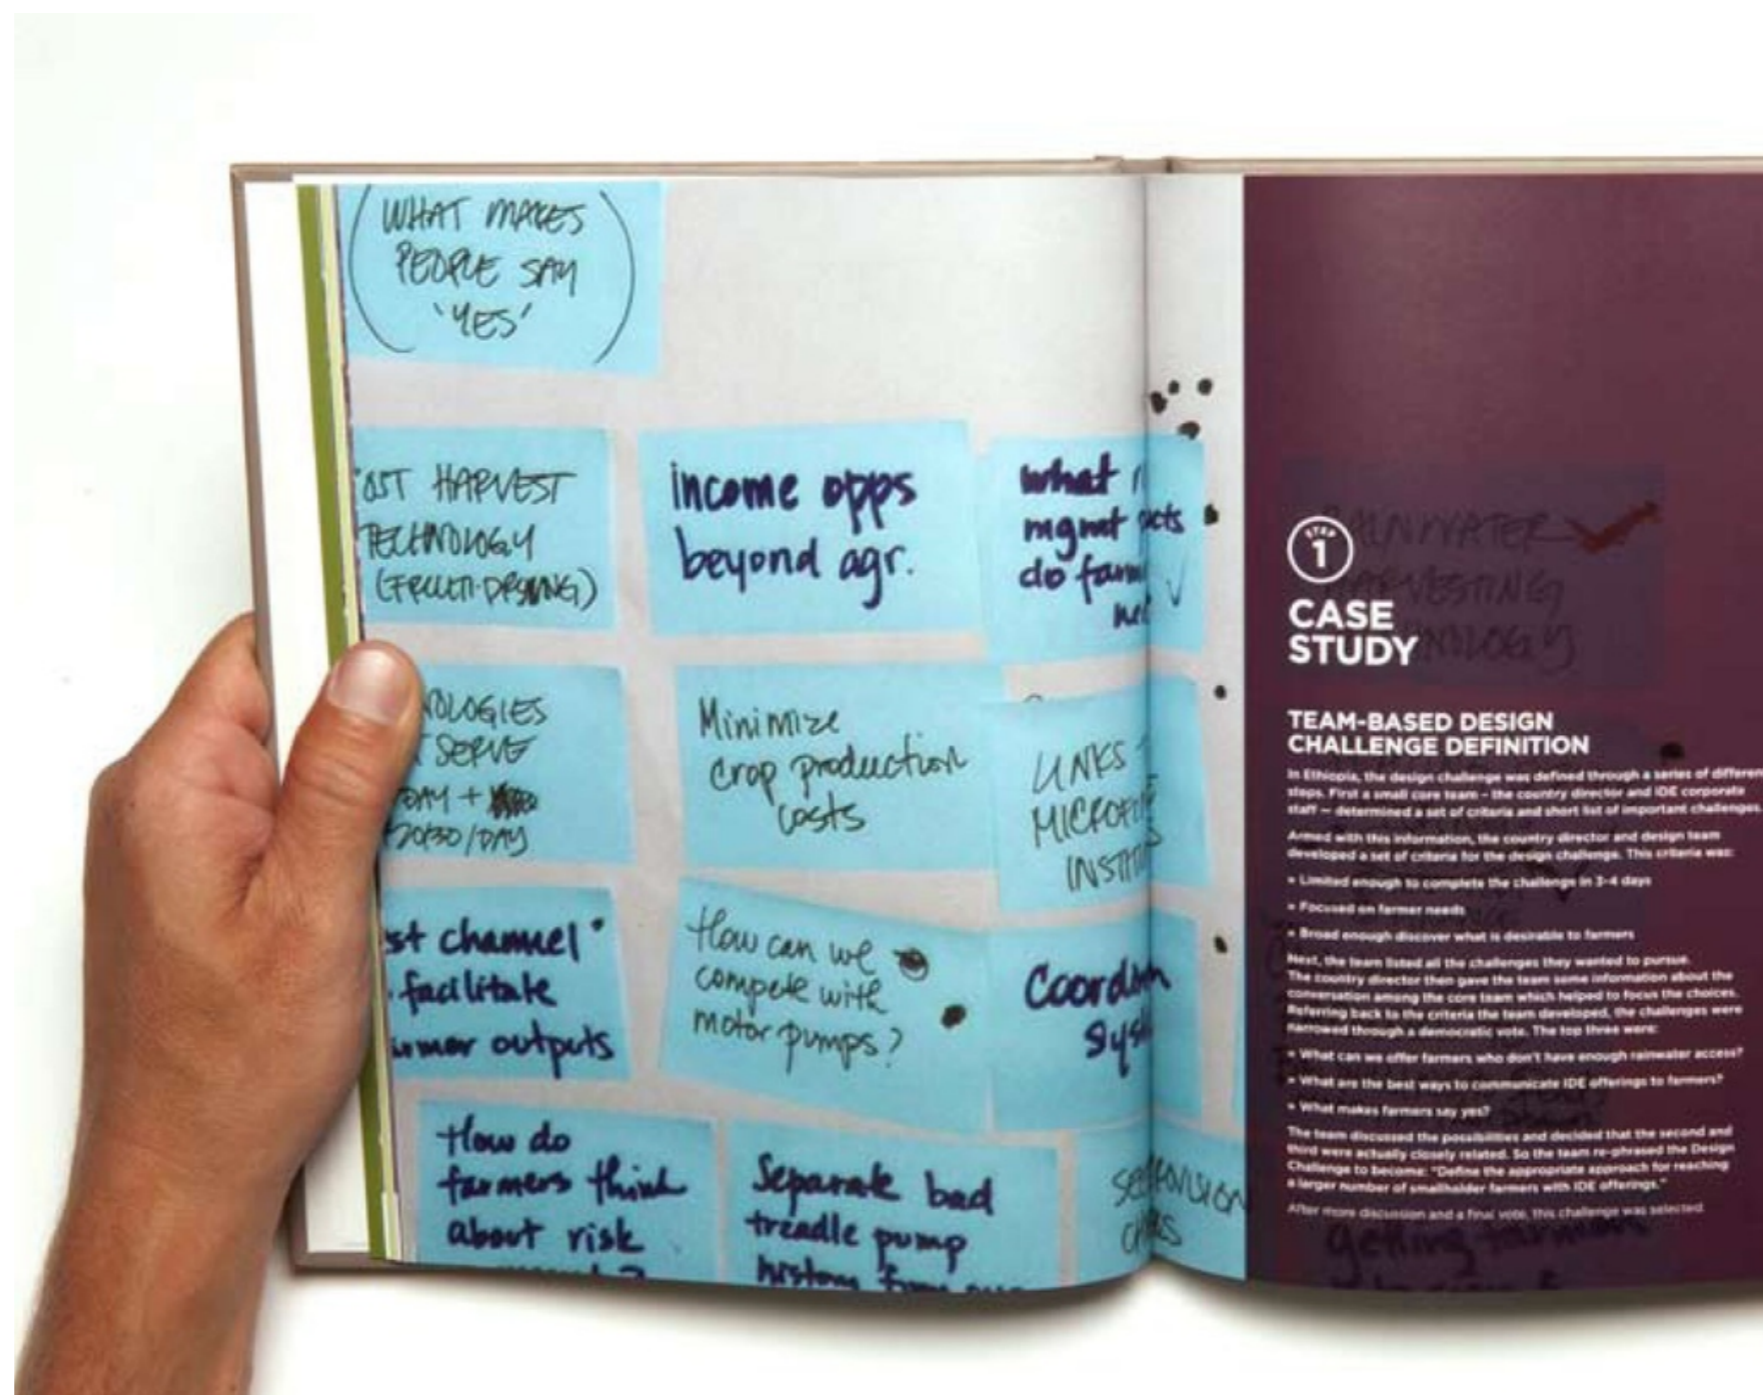 WHAT MAKES
PEOPLE SAY
'YES'
OST HARVEST
TECHNOLOGY
income opps
beyond agr.
what
mgmt
do farm
NOLOGIES
SERVE
DAY +
Minimize
crop production
costs
LINKS
MICROFI
INSTIT
st channel
facilitate
outputs
How can we
compete with
motor pumps?
Coord
Syst
How do
farmers think
about risk
Separate bad
treadle pump
history from our
STEP
1
CASE
STUDY
RAINWATER
HARVESTING
NOLOGY
TEAM-BASED DESIGN
CHALLENGE DEFINITION
In Ethiopia, the design challenge was defined through a series of differen
steps. First a small core team – the country director and IDE corporate
staff — determined a set of criteria and short list of important challenges.
Armed with this information, the country director and design team
developed a set of criteria for the design challenge. This criteria was:
» Limited enough to complete the challenge in 3-4 days
» Focused on farmer needs
» Broad enough discover what is desirable to farmers
Next, the team listed all the challenges they wanted to pursue.
The country director then gave the team some information about the
conversation among the core team which helped to focus the choices.
Referring back to the criteria the team developed, the challenges were
narrowed through a democratic vote. The top three were:
» What can we offer farmers who don't have enough rainwater access?
» What are the best ways to communicate IDE offerings to farmers?
» What makes farmers say yes?
The team discussed the possibilities and decided that the second and
third were actually closely related. So the team re-phrased the Design
Challenge to become: "Define the appropriate approach for reaching
a larger number of smallholder farmers with IDE offerings."
After more discussion and a final vote, this challenge was selected
getting farmers